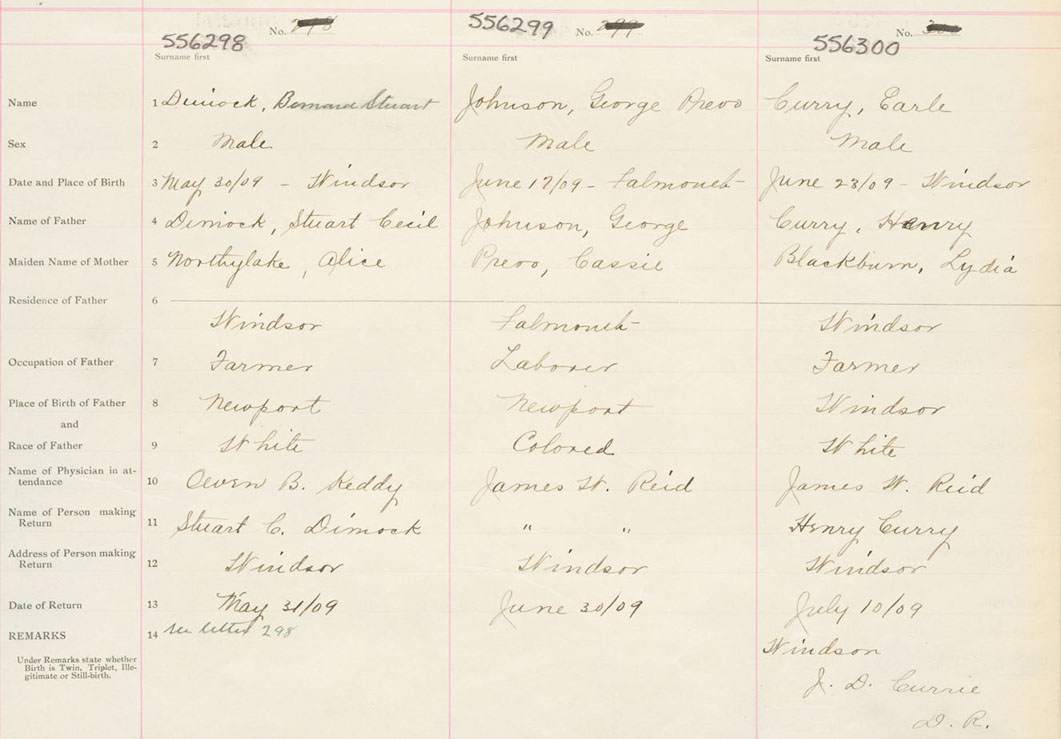 No. 298 No. 299 No.
556298 556299 556300
Surname first Surname first Surname first
Name 1 Dimock, Bernard Stuart Johnson, George Prevo Curry, Earle
Sex 2 Male Male Male
Date and Place of Birth 3 May 30/09 - Windsor June 17/09 - Falmouth June 23/09 - Windsor
Name of Father 4 Dimock, Stuart Cecil Johnson, George Curry, Henry
Maiden Name of Mother 5 Northylake, Alice Prevo, Cassie Blackburn, Lydia
Residence of Father 6
Windsor Falmouth Windsor
Occupation of Father 7 Farmer Laborer Farmer
Place of Birth of Father 8 Newport Newport Windsor
and
Race of Father 9 White Colored White
Name of Physician in at-
tendance 10 Owen B. Keddy James W. Reid James W. Reid
Name of Person making
Return 11 Stuart C. Dimock " " Henry Curry
Address of Person making
Return 12 Windsor Windsor Windsor
Date of Return 13 May 31/09 June 30/09 July 10/09
REMARKS 14 see letter 298
Under Remarks state whether
Birth is Twin, Triplet, Ille-
gitimate or Still-birth.
Windsor
J. D. Currie
D. R.